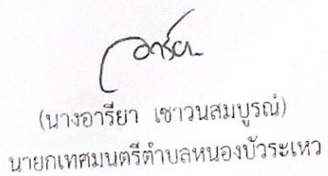 อารียา
(นางอารียา เชาวนสมบูรณ์)
นายกเทศมนตรีตำบลหนองบัวระเหว